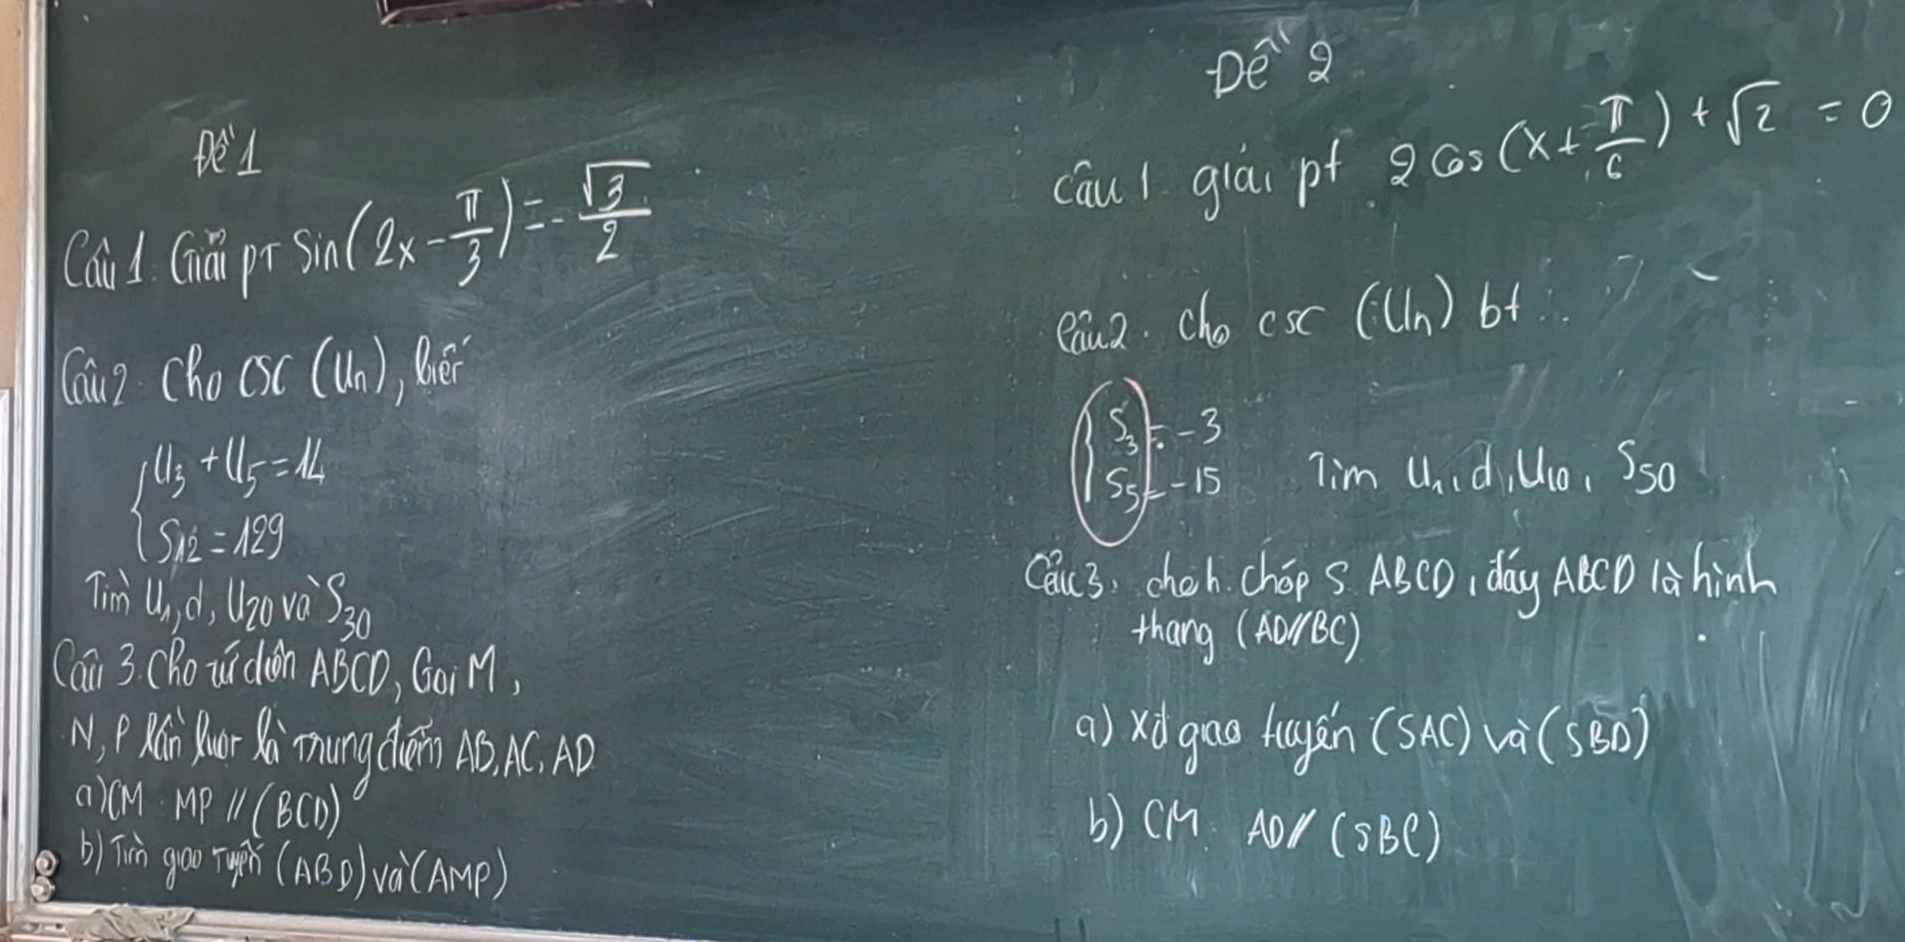 Đề 1
Câu 1. Giải pT Sin(2x - π/3) = -√3/2
Câu 2. Cho CSC (Un), biết
{ U3 + U5 = 14
{ S12 = 129
Tìm U1, d, U20 và S30
Câu 3. Cho tứ diện ABCD, Gọi M,
N, P lần lượt là trung điểm AB, AC, AD
a) CM. MP // (BCD)
b) Tìm giao Tuyến (ABD) và (AMP)
Đề 2
Câu 1. giải pt 2 Cos (x + π/6) + √2 = 0
Câu 2. cho csc (Un) bt :
{ S3 = -3
{ S5 = -15 Tìm U1, d, U10, S50
Câu 3. cho h. chóp S. ABCD, đáy ABCD là hình
thang (AD//BC)
a) Xđ giao tuyến (SAC) và (SBD)
b) CM. AD // (SBC)